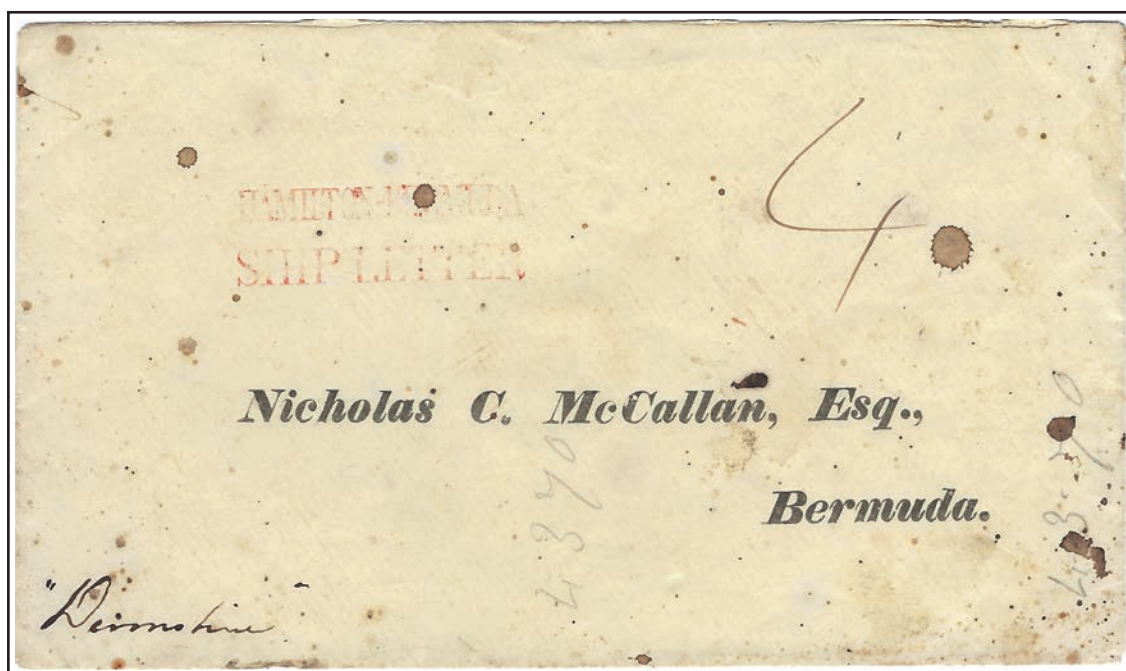 HAMILTON-BERMUDA
SHIP LETTER
4
Nicholas C. McCallan, Esq.,
Bermuda.
4370
4370